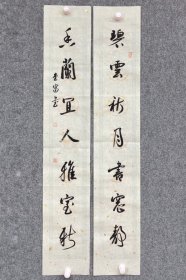 碧雲秋月書窓靜
香蘭宜人雅室新